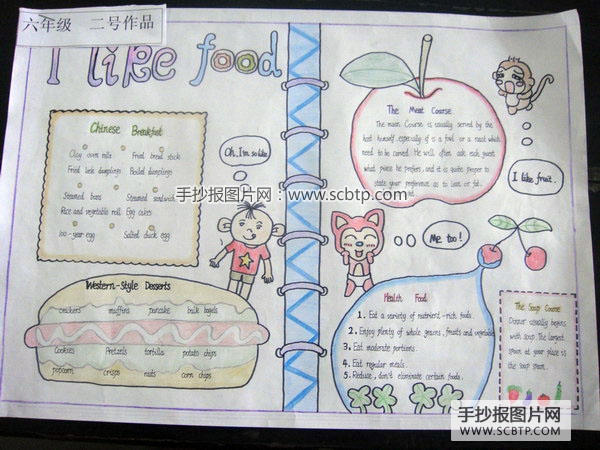 六年级 二号作品
I like food
Chinese Breakfast
Clay oven rolls Fried bread stick
Fried leek dumplings Boiled dumplings
Steamed buns Steamed sandwich
Rice and vegetable roll Egg cakes
100-year egg Salted duck egg
Oh, I'm so like
Western-Style Desserts
crackers muffins pancake bulk bagels
Cookies Pretzels tortilla potato chips
popcorn crisps nuts corn chips
The Meat Course
The main Course is usually served by the
host himself especially if is a fowl or a roast which
need to be carved. He will often ask each guest
what piece he prefers, and it is quite proper to
state your preference as to lean or fat.
I like fruit.
Me too!
Health Food
1. Eat a variety of nutrient-rich foods.
2. Enjoy plenty of whole grains, fruits and vegetables
3. Eat moderate portions.
4. Eat regular meals.
5. Reduce, don't eliminate certain foods.
The Soup Course
Dinner usually begins
with soup. The largest
spoon at your place is
the soup spoon.
手抄报图片网：www.scbtp.com
手抄报图片网
WWW.SCBTP.COM